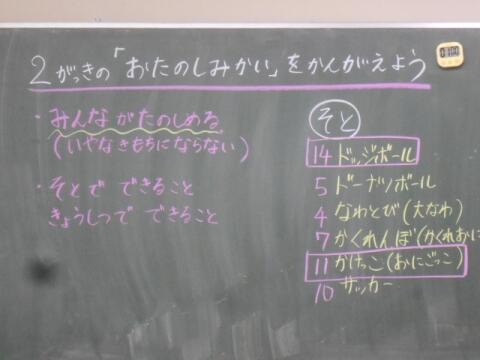 2がっきの「おたのしみかい」をかんがえよう
・みんながたのしめる
(いやなきもちにならない)
・そとで できること
きょうしつで できること
そと
14 ドッジボール
5 ドーナツボール
4 なわとび(大なわ)
7 かくれんぼ(かくれおに
11 かけっこ(おにごっこ)
10 サッカー